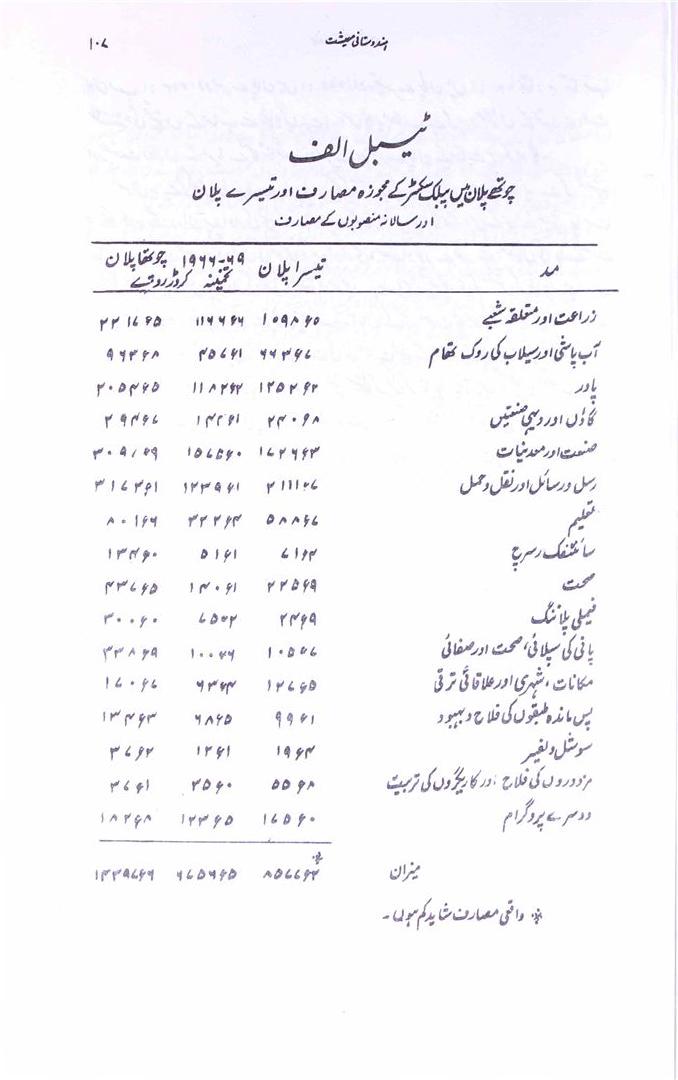 ہندوستانی معیشت ۱۰۷
ٹیبل الف
چوتھے پلان میں پبلک سکٹر کے مجوزہ مصارف اور تیسرے پلان
اور سالانہ منصوبوں کے مصارف
مد تیسرا پلان ۶۹-۱۹۶۶ تخمینہ چوتھا پلان کروڑ روپے
زراعت اور متعلقہ شعبے ۱۰۹۸ء۰ ۱۱۶۶ء۶ ۲۲۱۷ء۵
آب پاشی اور سیلاب کی روک تھام ۶۶۳ء۷ ۴۵۷ء۱ ۹۶۳ء۸
پاور ۱۲۵۲ء۲ ۱۱۸۲ء۲ ۲۰۵۴ء۵
گاؤں اور دیہی صنعتیں ۲۴۰ء۸ ۱۴۴ء۱ ۲۹۴ء۷
صنعت اور معدنیات ۱۷۲۶ء۳ ۱۵۷۵ء۰ ۳۰۹۰ء۹
رسل و رسائل اور نقل و حمل ۲۱۱۱ء۷ ۱۲۳۹ء۱ ۳۱۷۳ء۱
تعلیم ۵۸۸ء۷ ۳۲۲ء۴ ۸۰۱ء۶
سائنٹفک ریسرچ ۷۱ء۴ ۵۱ء۱ ۱۳۴ء۰
صحت ۲۲۵ء۹ ۱۴۰ء۱ ۴۳۷ء۵
فیملی پلاننگ ۲۴ء۹ ۷۵ء۲ ۳۰۰ء۰
پانی کی سپلائی، صحت اور صفائی ۱۰۵ء۷ ۱۰۰ء۶ ۳۳۸ء۹
مکانات، شہری اور علاقائی ترقی ۱۲۷ء۵ ۶۳ء۴ ۱۷۰ء۷
پس ماندہ طبقوں کی فلاح و بہبود ۹۹ء۱ ۶۸ء۵ ۱۳۴ء۳
سوشل ویلفیر ۱۹ء۴ ۱۲ء۱ ۳۷ء۲
مزدوروں کی فلاح اور کاریگروں کی تربیت ۵۵ء۸ ۳۵ء۰ ۳۷ء۱
دوسرے پروگرام ۱۷۵ء۰ ۱۲۳ء۵ ۱۸۲ء۸
میزان ۸۵۷۷ء۲* ۶۷۵۶ء۵ ۱۴۳۹۷ء۶
* واقعی مصارف شاید کم ہوں۔